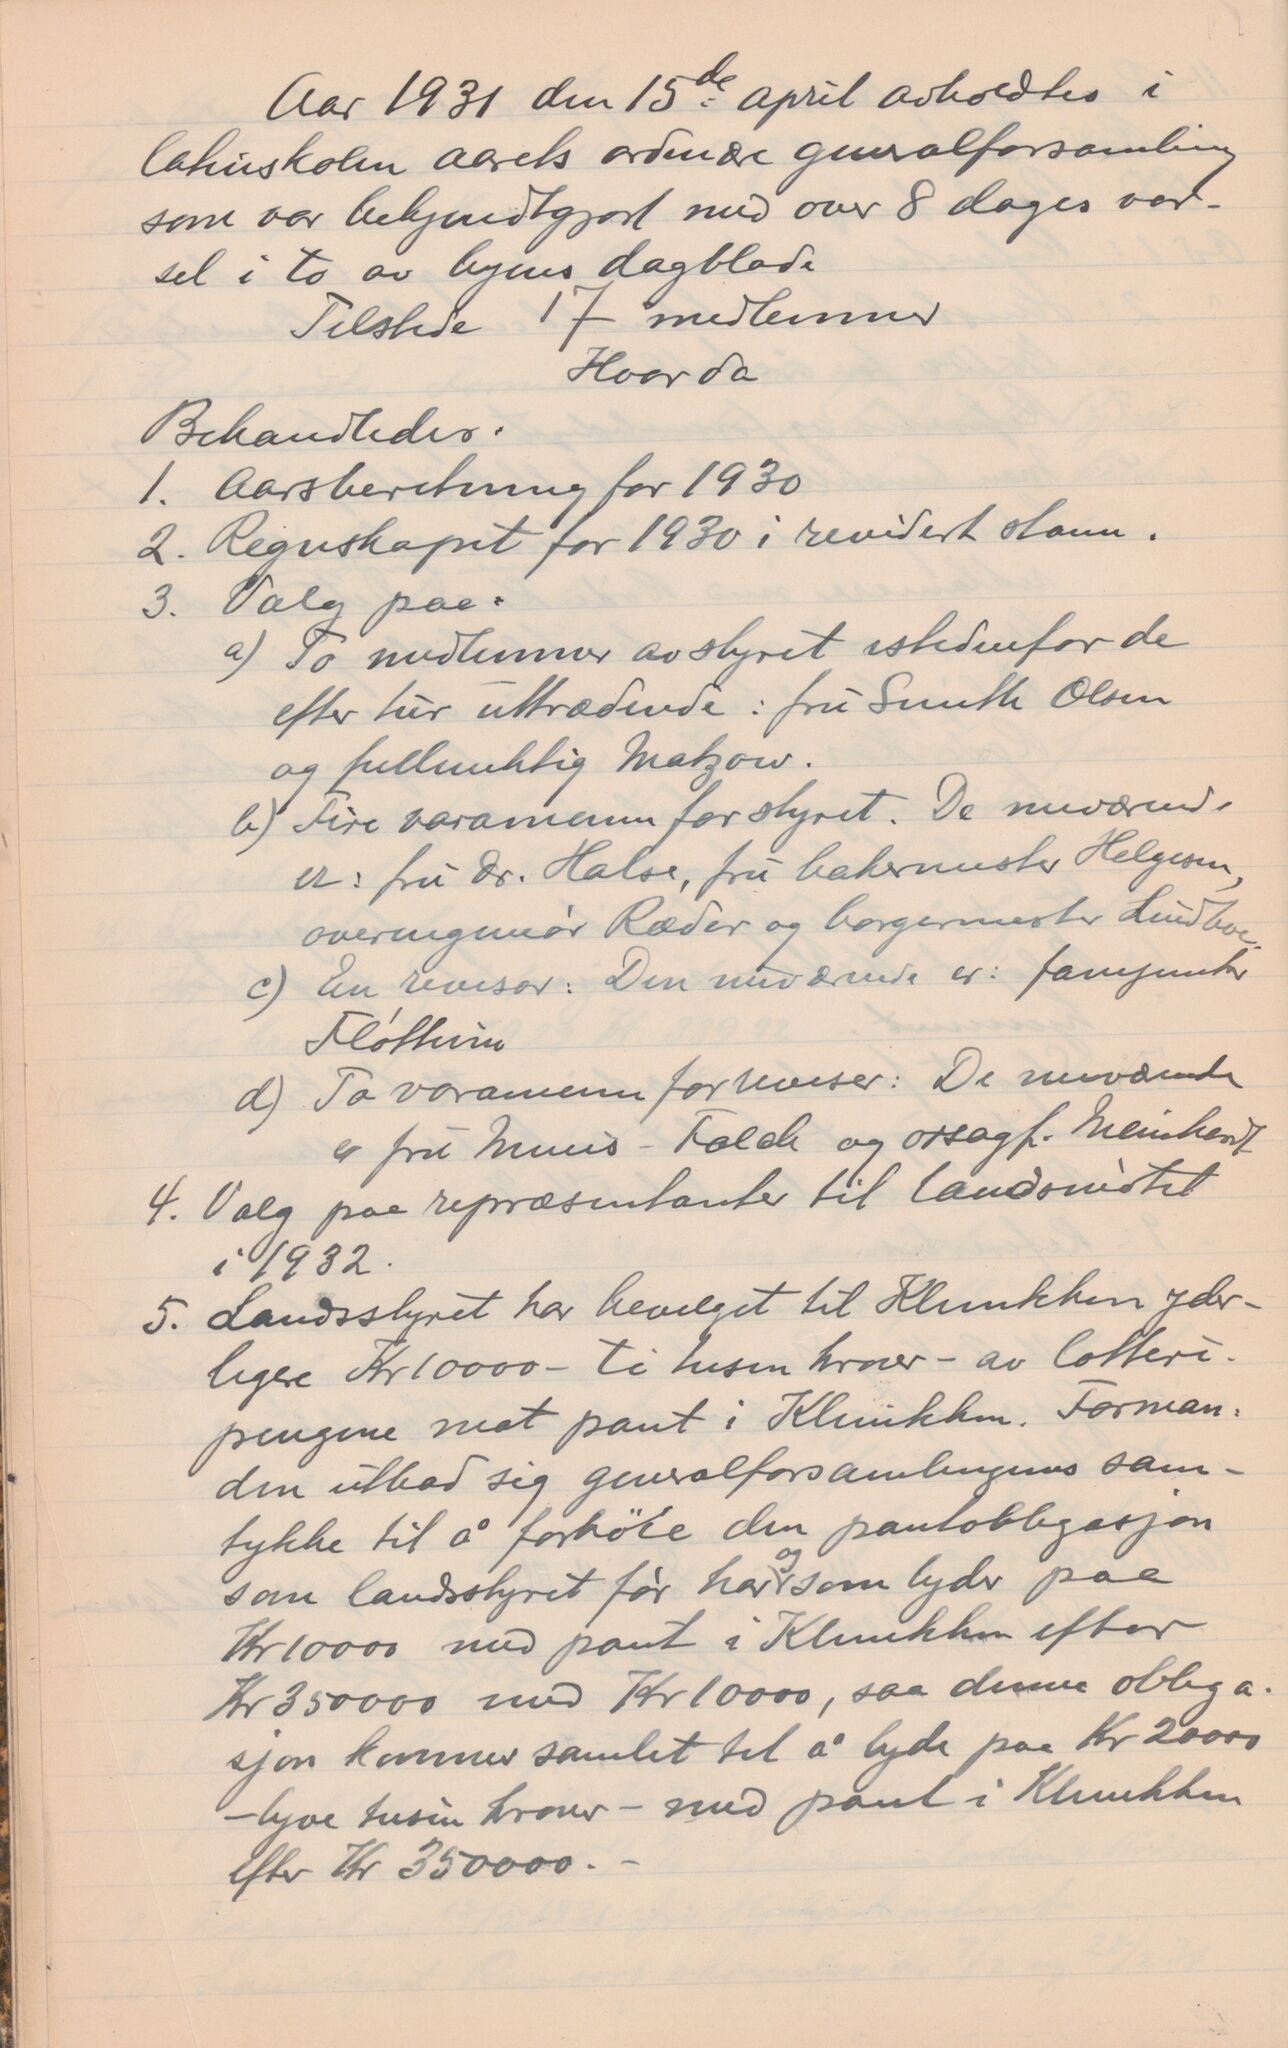 Aar 1931 den 15de april avholdtes i
latinskolen aarets ordinære generalforsamling
som var bekjendtgjort med over 8 dages var-
sel i to av byens dagblade
Tilstede 17 medlemmer
Hvorda
Behandledes.
1. Aarsberetning for 1930
2. Regnskapet for 1930 i revidert stann.
3. Valg paa:
a) To medlemmer av styret istedenfor de
efter tur uttrædende: fru Smith Olsen
og fullmektig Matzow.
b) Fire varamenn for styret. De nuværende
er: fru Dr. Halse, fru bakermester Helgesen,
overingeniør Ræder og borgermester Lindboe.
c) En revisor: Den nuværende er: fanejunker
Fløttum
d) To varamenn for revisor: De nuværende
er fru Muus-Falck og orsagf. Meinhardt
4. Valg paa repræsentanter til landsmøtet
i 1932.
5. Landsstyret har bevilget til Klinikken yder-
ligere Kr 10000 - ti tusen kroner - av lotteri-
pengene mot pant i Klinikken. Forman-
den utbad sig generalforsamlingens sam-
tykke til å forhöie den pantobligasjon
som landsstyret før har og som lyder paa
Kr 10000 med pant i Klinikken efter
Kr 350000 med Kr 10000, saa denne obliga-
sjon kommer samlet til å lyde paa Kr 20000
- tyve tusin kroner - med pant i Klinikken
efter Kr 350000.-